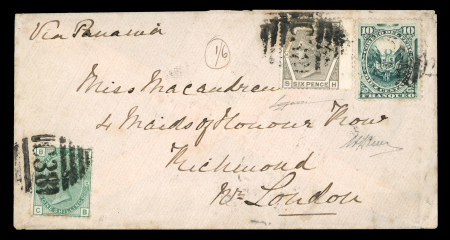 Via Panama
1/6
SIX PENCE
S H
10 10
FRANQUEO
Miss Macandrew
4 Maids of Honour Row
Richmond
Nr. London
C B